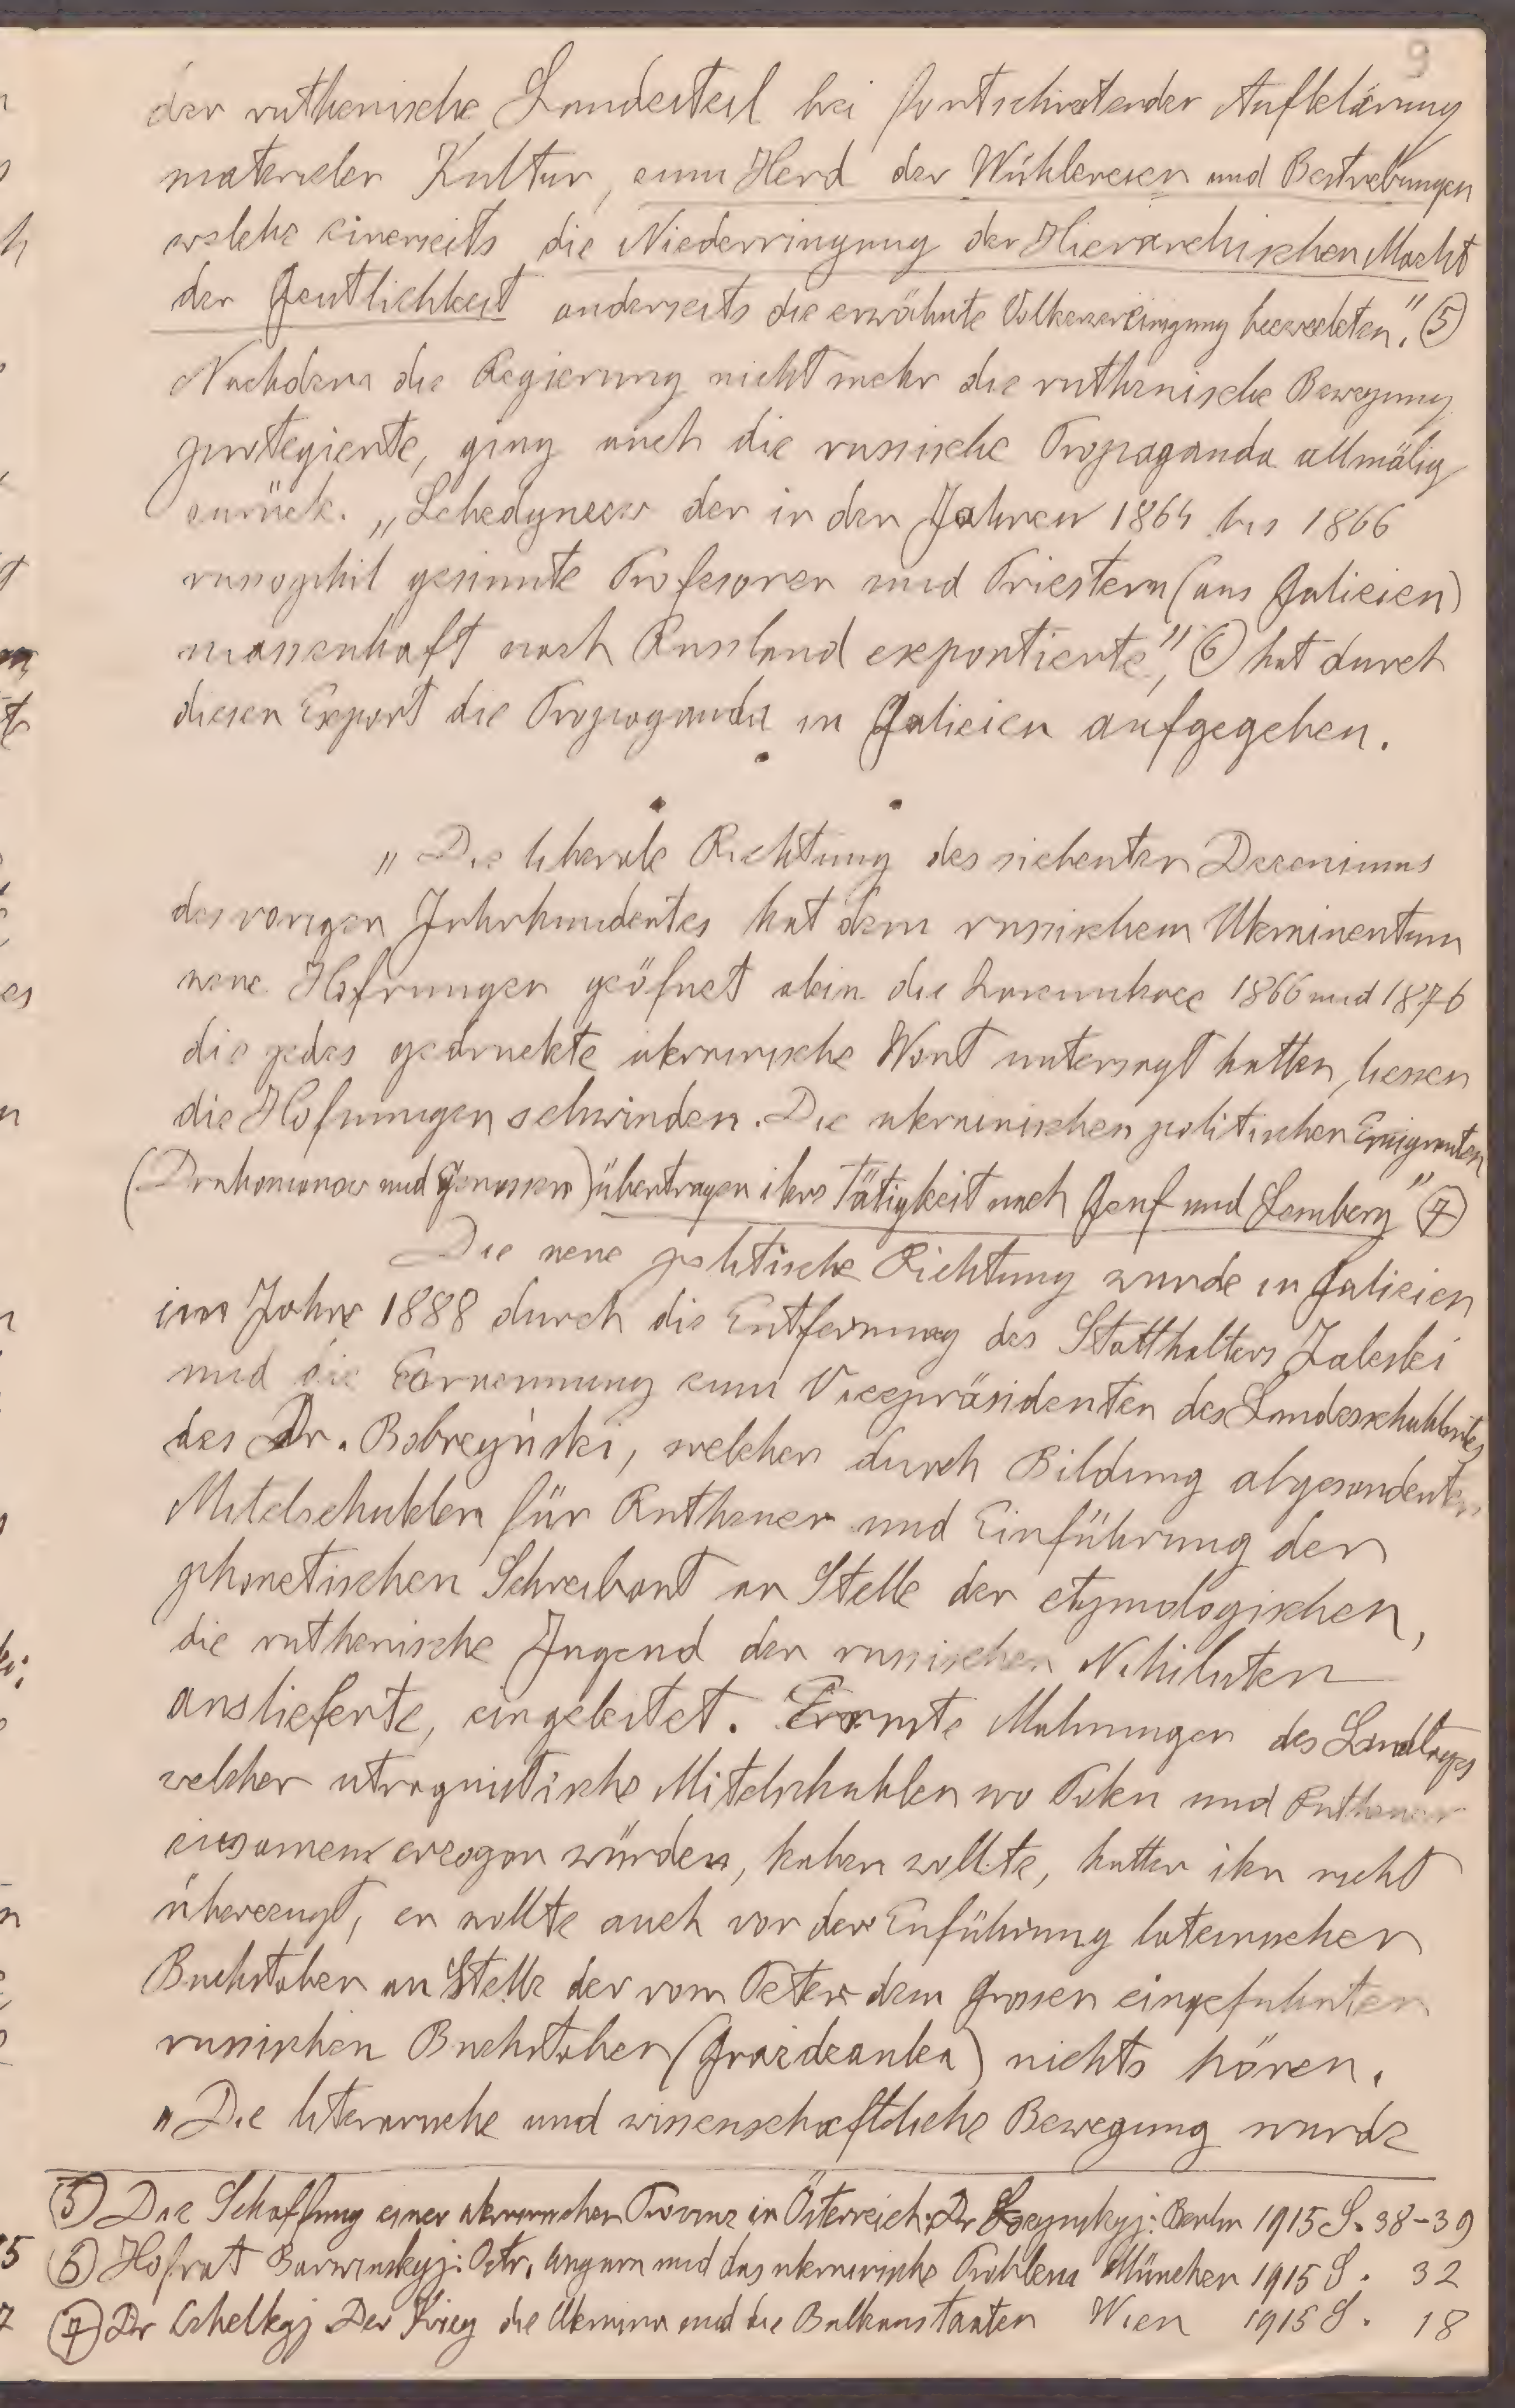 9
der ruthenische Landesteil bei fortschreitender Aufklärung
materieler Kultur, zum Herd der Wühlereien und Bestrebungen
welche einerseits die Niederringung der Hierarchischen Macht
der Geistlichkeit anderseits die erwähnte Volkervereinigung bezweckten." (5)
Nachdem die Regierung nicht mehr die ruthenische Bewegung
protegierte, ging auch die russische Propaganda allmälig
zurück. „Lebedyncew der in den Jahren 1864 bis 1866
rusophil gesinnte Profesoren und Priestern (aus Galizien)
massenhaft nach Russland exportierte", (6) hat durch
diesen Export die Propaganda in Galizien aufgegeben.
„Die liberale Richtung des siebenten Dezeniums
des vorigen Jahrhundertes hat dem russischem Ukrainentum
neue Hofnungen geöfnet alein die Zarenukaze 1866 und 1876
die jedes gedruckte ukrainische Wort untersagt hatten, liessen
die Hofnungen schwinden. Die ukrainischen politischen Emigranten
(Drahomanow und Genossen) übertragen ihre Tätigkeit nach Genf und Lemberg" (7)
Die neue politische Richtung wurde in Galizien
im Jahre 1888 durch die Entfernung des Statthalters Zaleski
und die Ernennung zum Vizepräsidenten des Landesschuhlrates
des Dr. Bobrzyński, welcher durch Bildung abgesonderten
Mitelschuhlen für Ruthenen und Einführung der
phonetischen Schreibart an Stelle der etymologischen,
die ruthenische Jugend den russischen Nihilisten
auslieferte, eingeleitet. Ernste Mahnungen des Landtages
welcher utraquistische Mitelschuhlen wo Polen und Ruthenen
zusamen erzogen würden, haben wollte, hatten ihn nicht
überzeugt, er wollte auch von der Einführung lateinischer
Buchstaben an Stelle der vom Peter dem Grossen eingeführten
russischen Buchstaben (Graždanka) nichts hören.
„Die literarische und wissenschaftliche Bewegung wurde
(5) Die Schaffung einer ukrainischen Provinz in Österreich: Dr Łozynskyj: Berlin 1915 S. 38-39
(6) Hofrat Barwinskyj: Östr. Ungarn und das ukrainische Problem München 1915 S. 32
(7) Dr Der Krieg die Ukraina und die Balkanstaaten Wien 1915 S. 18